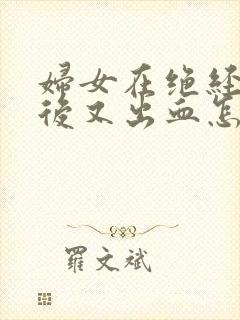 婦女在绝经
後又出血怎
羅文斌